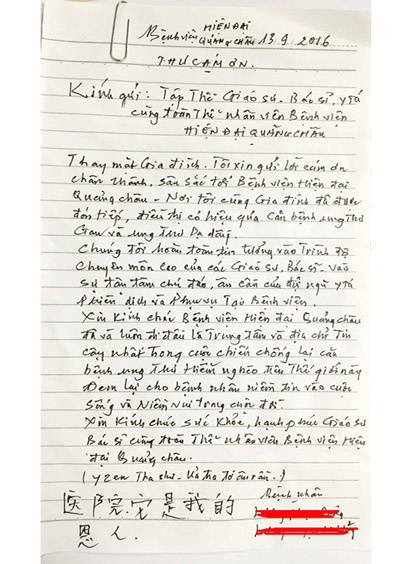 HIỆN ĐẠI
Bệnh viện QUẢNG CHÂU 13.9.2016
THƯ CẢM ƠN.
Kính gửi: Tập Thể Giáo sư. Bác sĩ, y tá
cùng toàn Thể nhân viên Bệnh viện
HIỆN ĐẠI QUẢNG CHÂU
Thay mặt Gia đình. Tôi xin gửi lời cám ơn
chân thành, sâu sắc tới Bệnh viện Hiện đại
Quảng châu - Nơi tôi cùng Gia đình đã được
đón tiếp, điều trị có hiệu quả Căn bệnh ung Thư
Gan và ung Thư Dạ dầy.
Chúng tôi hoàn toàn tin tưởng vào Trình độ
Chuyên môn cao của các Giáo sư, Bác sĩ. Vào
sự tân tâm chu đáo, ân cần của đội ngũ y tá
Phiên dịch và Phục vụ Tại Bệnh viện.
Xin Kính chúc Bệnh viện Hiện đại Quảng châu
đã và luôn đi đầu là Trung tâm và địa chỉ Tin
cậy nhất trong cuộc chiến chống lại căn
bệnh ung Thư Hiểm nghèo trên Thế giới này
Đem lại cho bệnh nhân niềm tin vào cuộc
sống và Niềm vui trong cuộc đời.
Xin Kính chúc sức Khỏe, hạnh phúc Giáo sư
Bác sĩ cùng toàn Thể nhân viên Bệnh viện Hiện
đại Quảng châu.
医院它是我的
恩人.
Bệnh nhân